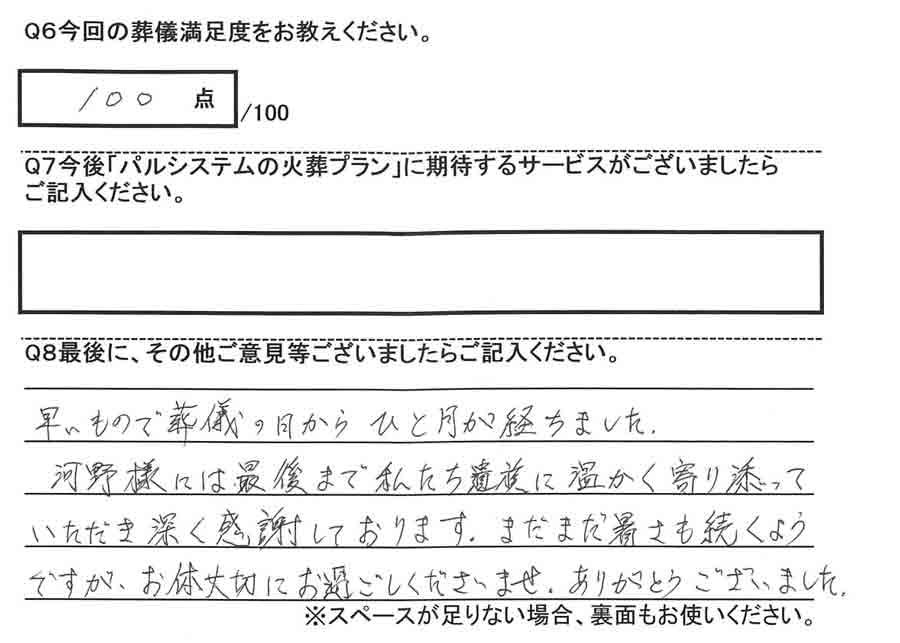 Q6今回の葬儀満足度をお教えください。
100 点 /100
Q7今後「パルシステムの火葬プラン」に期待するサービスがございましたら
ご記入ください。
Q8最後に、その他ご意見等ございましたらご記入ください。
早いもので葬儀の日から ひと月が経ちました.
河野様には最後まで私たち遺族に温かく寄り添って
いただき深く感謝しております. まだまだ暑さも続くよう
ですが、お体大切にお過ごしくださいませ. ありがとうございました.
※スペースが足りない場合、裏面もお使いください。